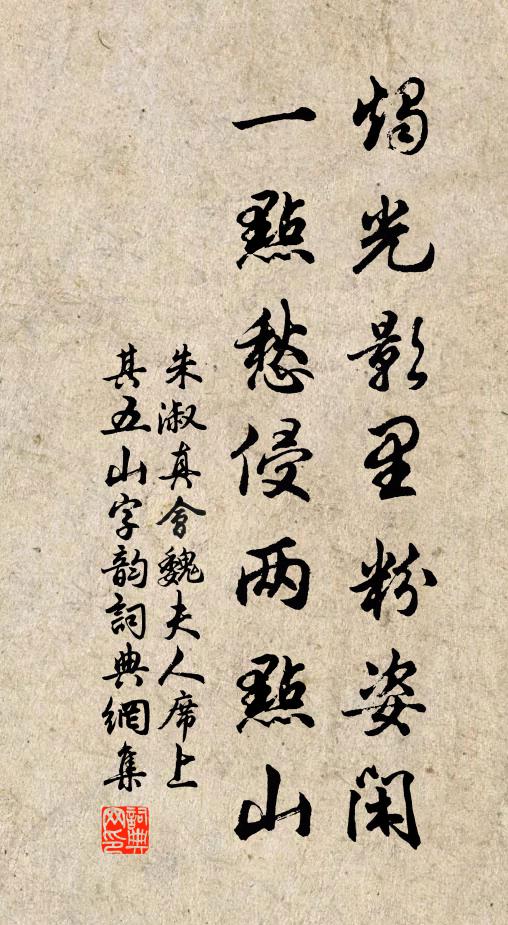 燭光影里粉姿閑
一點愁侵两點山
朱淑真會魏夫人席上
其五山字韵詞典網集
詞典
网印